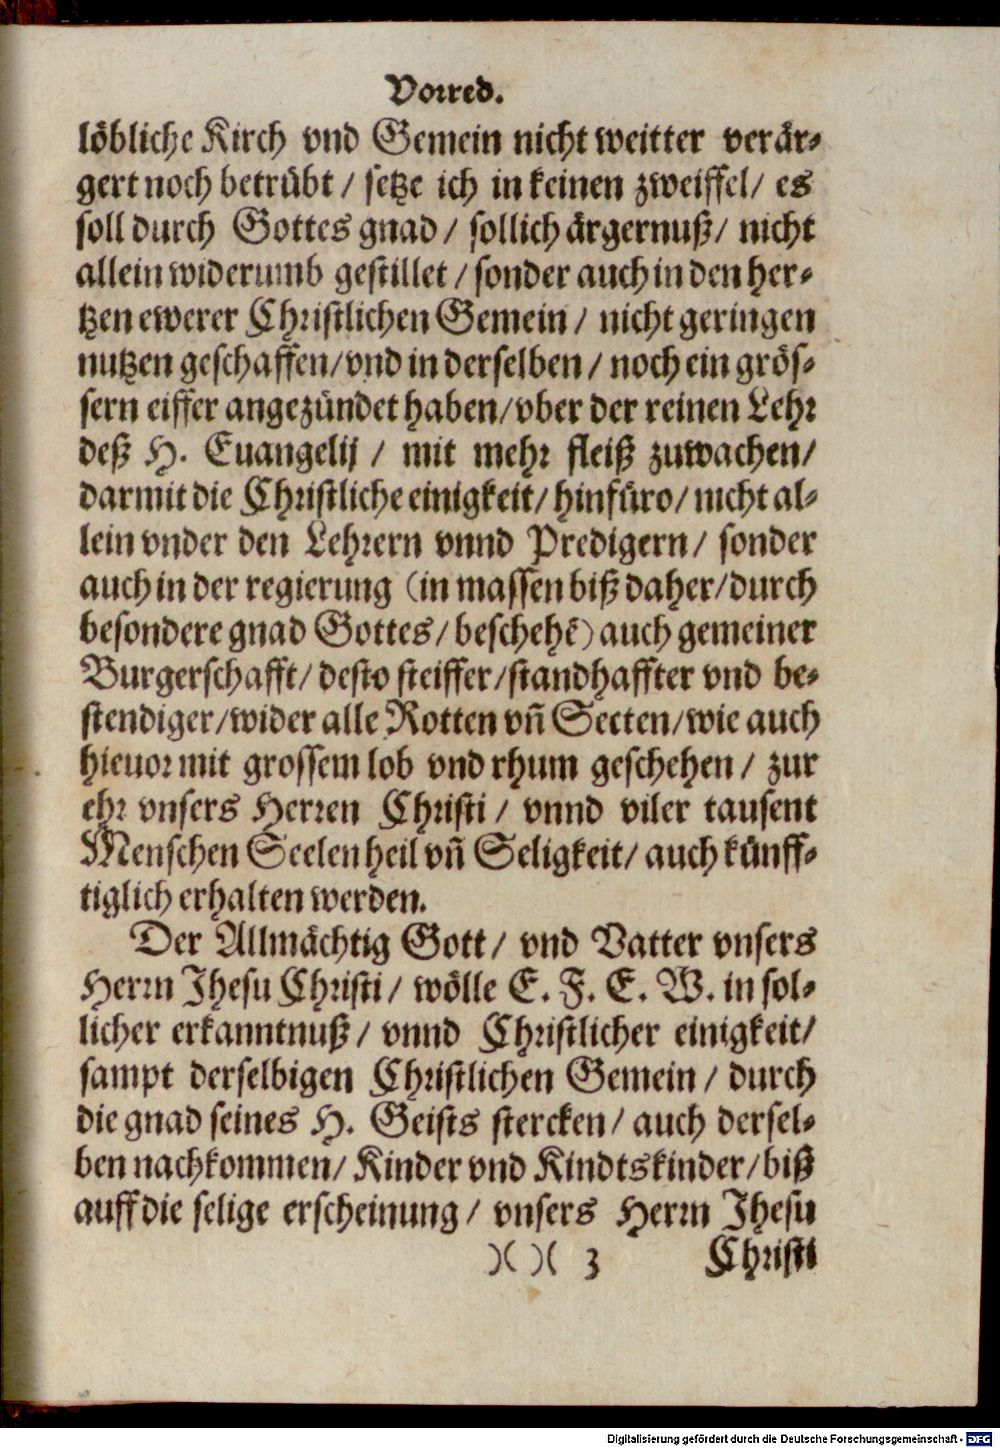 Vorred.
löbliche Kirch vnd Gemein nicht weitter verär⸗
gert noch betrübt / setze ich in keinen zweiffel / es
soll durch Gottes gnad / sollich ärgernuß / nicht
allein widerumb gestillet / sonder auch in den her⸗
tzen ewerer Christlichen Gemein / nicht geringen
nutzen geschaffen / vnd in derselben / noch ein grös⸗
sern eiffer angezündet haben / vber der reinen Lehr
deß H. Euangelij / mit mehr fleiß zuwachen /
darmit die Christliche einigkeit / hinfüro / nicht al⸗
lein vnder den Lehrern vnnd Predigern / sonder
auch in der regierung (in massen biß daher / durch
besondere gnad Gottes / beschehẽ) auch gemeiner
Burgerschafft / desto steiffer / standhaffter vnd be⸗
stendiger / wider alle Rotten vñ Secten / wie auch
hieuor mit grossem lob vnd rhum geschehen / zur
ehr vnsers Herren Christi / vnnd viler tausent
Menschen Seelen heil vñ Seligkeit / auch künff⸗
tiglich erhalten werden.
Der Allmächtig Gott / vnd Vatter vnsers
Herrn Jhesu Christi / wölle E. F. E. W. in sol⸗
licher erkanntnuß / vnnd Christlicher einigkeit /
sampt derselbigen Christlichen Gemein / durch
die gnad seines H. Geists stercken / auch dersel⸗
ben nachkommen / Kinder vnd Kindtskinder / biß
auff die selige erscheinung / vnsers Herrn Jhesu
)( )( 3 Christi
Digitalisierung gefördert durch die Deutsche Forschungsgemeinschaft - DFG